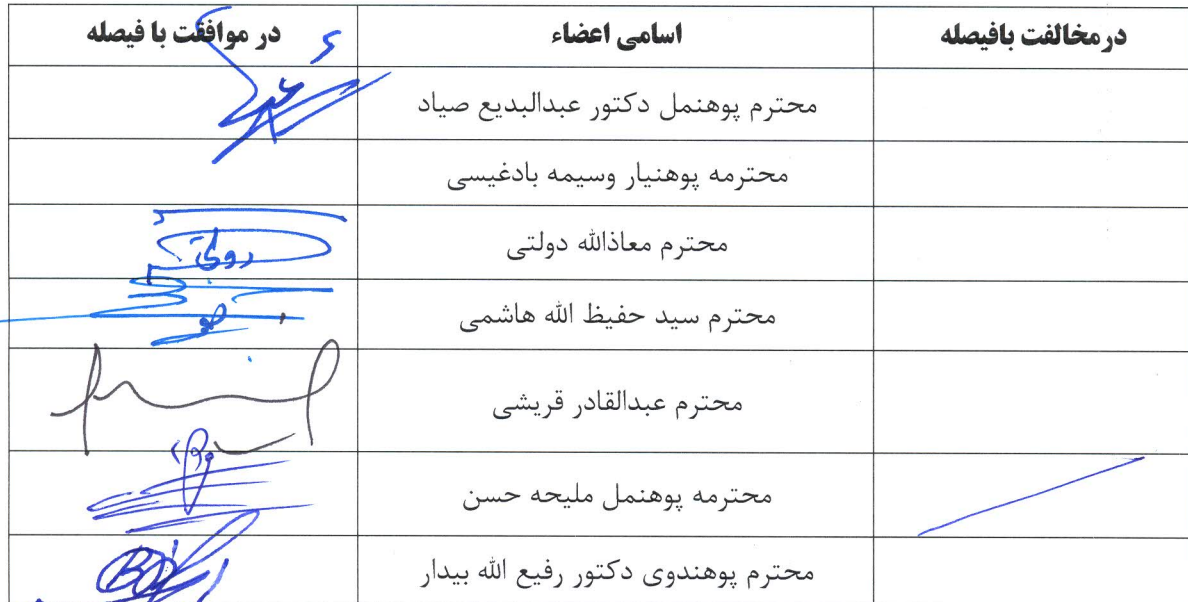 درمخالفت بافیصله اسامی اعضاء در موافقت با فیصله
محترم پوهنمل دکتور عبدالبدیع صیاد
محترمه پوهنیار وسیمه بادغیسی
محترم معاذالله دولتی
محترم سید حفیظ الله هاشمی
محترم عبدالقادر قریشی
محترمه پوهنمل ملیحه حسن
محترم پوهندوی دکتور رفیع الله بیدار